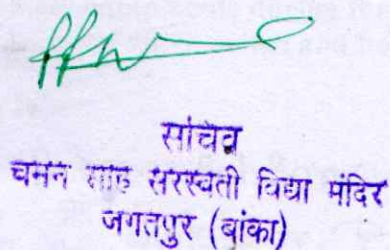 सचिव
चमन साह सरस्वती विद्या मंदिर
जगतपुर (बांका)